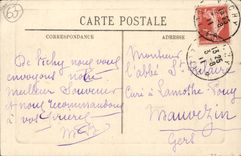 63
CARTE POSTALE
CORRESPONDANCE
ADRESSE
De Vichy nous vous
envoyons notre
meilleur Souvenir
et nous recommandons
à vos
Monsieur
l'abbé
Curé à Lamothe
Mauvezin
Gers